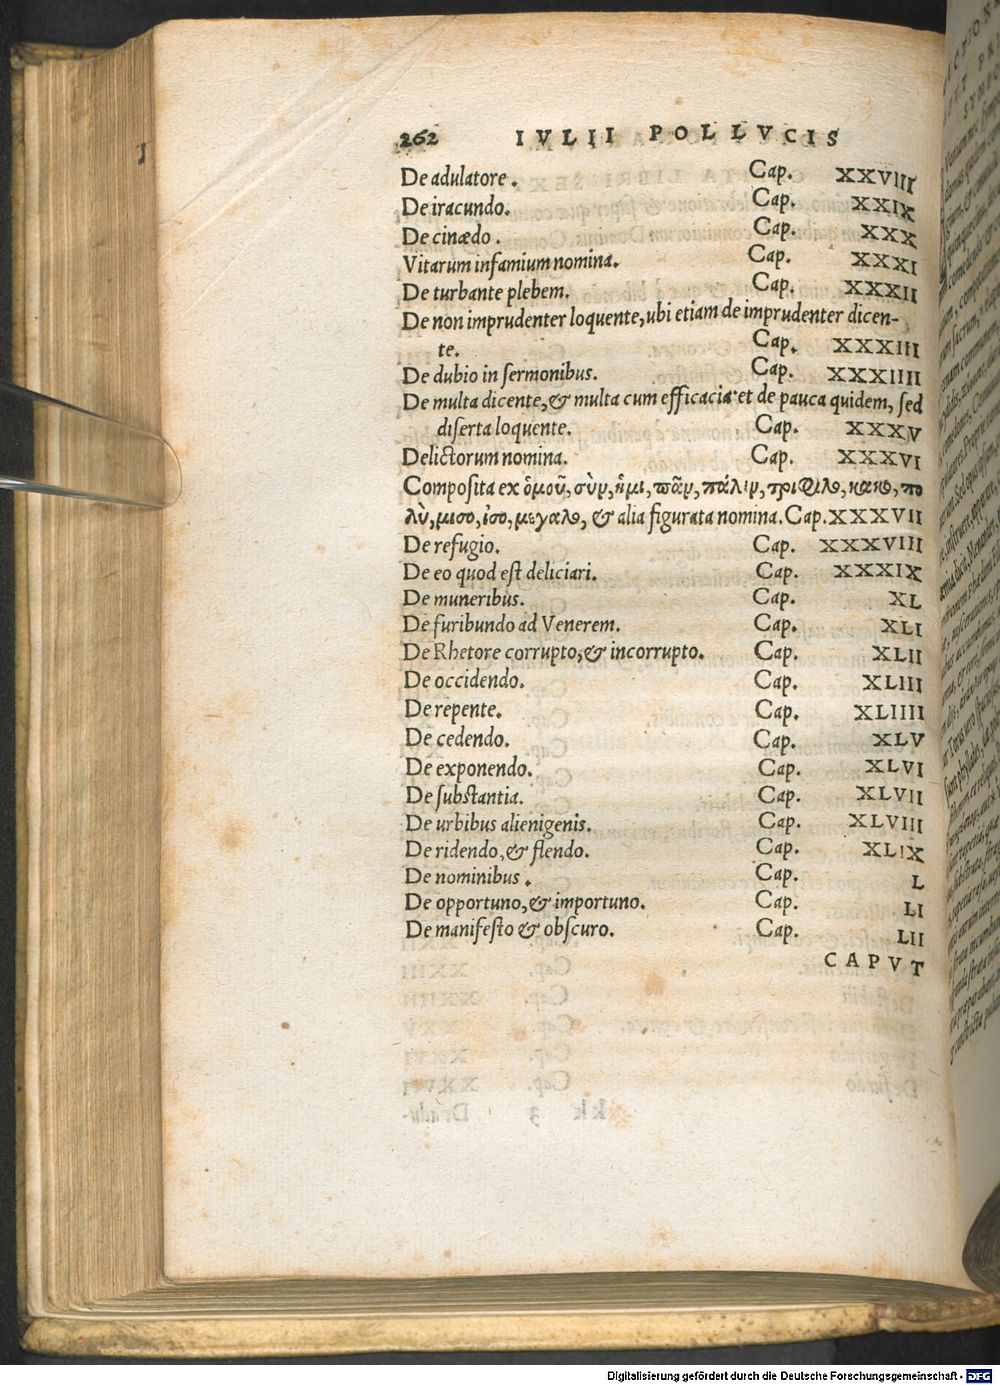 262 IVLII POLLVCIS
De adulatore. Cap. XXVIII
De iracundo. Cap. XXIX
De cinædo. Cap. XXX
Vitarum infamium nomina. Cap. XXXI
De turbante plebem. Cap. XXXII
De non imprudenter loquente, ubi etiam de imprudenter dicen-
te. Cap. XXXIII
De dubio in ſermonibus. Cap. XXXIIII
De multa dicente, & multa cum efficacia: et de pauca quidem, ſed
diſerta loquente. Cap. XXXV
Delictorum nomina. Cap. XXXVI
Compoſita ex ὁμοῦ, σὺν, ἥμι, πᾶν, πάλιν, τριφιλο, κακο, πο
λὺ, μισο, ἰσο, μεγαλο, & alia figurata nomina. Cap. XXXVII
De refugio. Cap. XXXVIII
De eo quod eſt deliciari. Cap. XXXIX
De muneribus. Cap. XL
De furibundo ad Venerem. Cap. XLI
De Rhetore corrupto, & incorrupto. Cap. XLII
De occidendo. Cap. XLIII
De repente. Cap. XLIIII
De cedendo. Cap. XLV
De exponendo. Cap. XLVI
De ſubſtantia. Cap. XLVII
De urbibus alienigenis. Cap. XLVIII
De ridendo, & flendo. Cap. XLIX
De nominibus. Cap. L
De opportuno, & importuno. Cap. LI
De manifeſto & obſcuro. Cap. LII
CAPVT
Digitalisierung gefördert durch die Deutsche Forschungsgemeinschaft - DFG